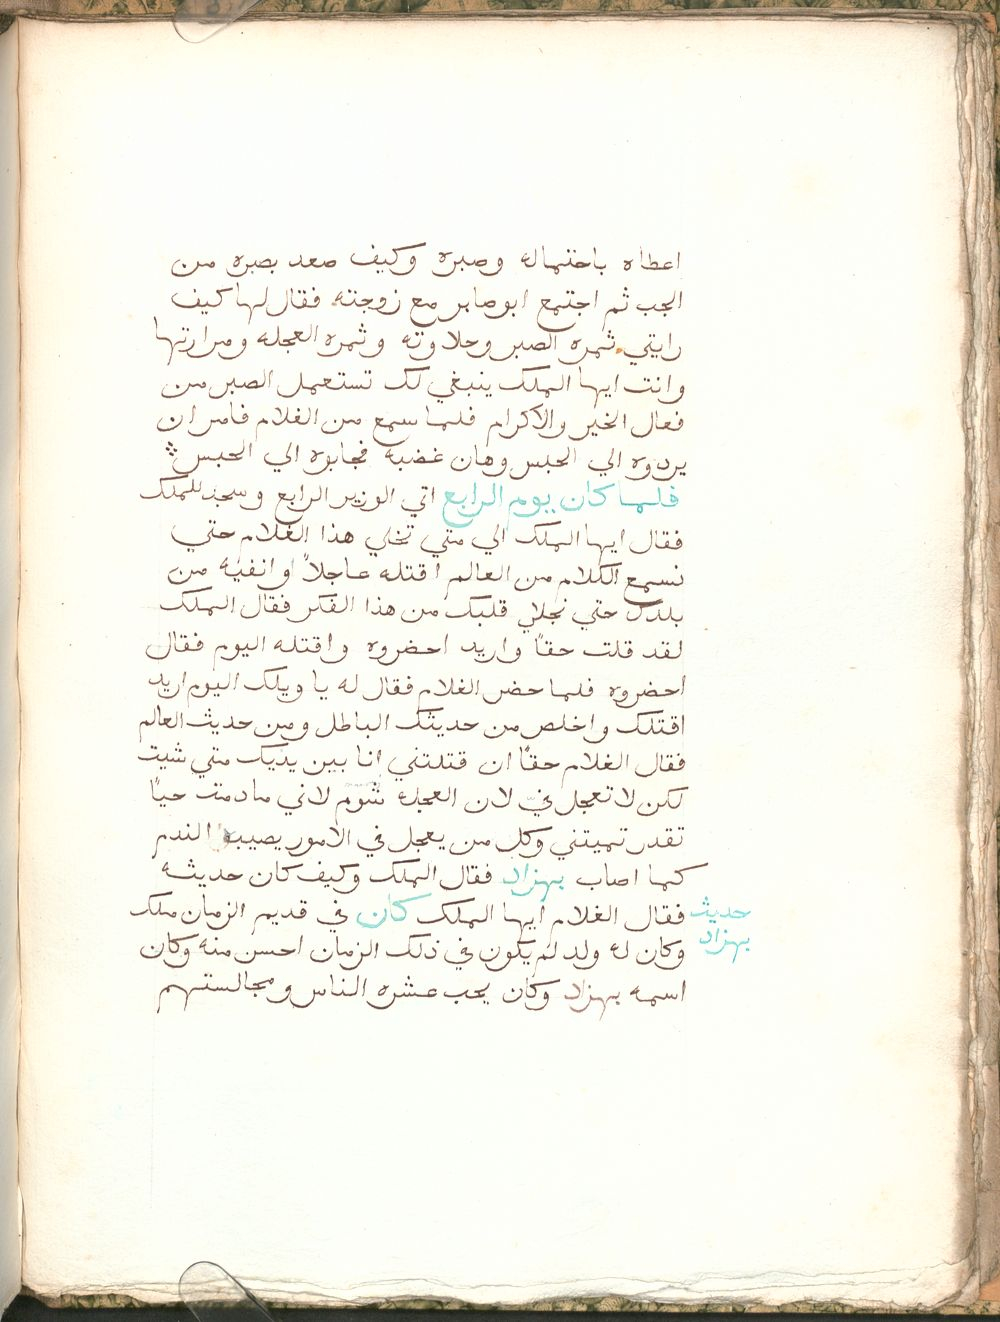 اعطاه باحتماله وصبره وكيف صعد بصبره من
الجب ثم اجتمع ابوصابر مع زوجته فقال لها كيف
رايتي ثمره الصبر وحلاوته وثمره العجله ومرارتها
وانت ايها الملك ينبغي لك تستعمل الصبر من
فعال الخير والاكرام فلما سمع من الغلام فامر ان
يردوه الي الحبس وهان غضبه فجابوه الي الحبس
فلما كان يوم الرابع اتي الوزير الرابع وسجد للملك
فقال ايها الملك الي متي تخلي هذا الغلام حتي
نسمع الكلام من العالم اقتله عاجلاً او انفيه من
بلدك حتي نجلي قلبك من هذا الفكر فقال الملك
لقد قلت حقاً واريد احضروه واقتله اليوم فقال
احضروه فلما حضر الغلام فقال له يا ويلك اليوم اريد
اقتلك واخلص من حديثك الباطل ومن حديث العالم
فقال الغلام حقاً ان قتلتني انا بين يديك متي شيت
لكن لا تعجل فيّ لان العجله شوم لاني ما دمت حياً
تقدر تميتني وكل من يعجل في الامور يصيبه الندم
كما اصاب بهزاد فقال الملك وكيف كان حديثه
حديث بهزاد
فقال الغلام ايها الملك كان في قديم الزمان ملك
وكان له ولد لم يكون في ذلك الزمان احسن منه وكان
اسمه بهزاد وكان يحب عشره الناس ومجالستهم